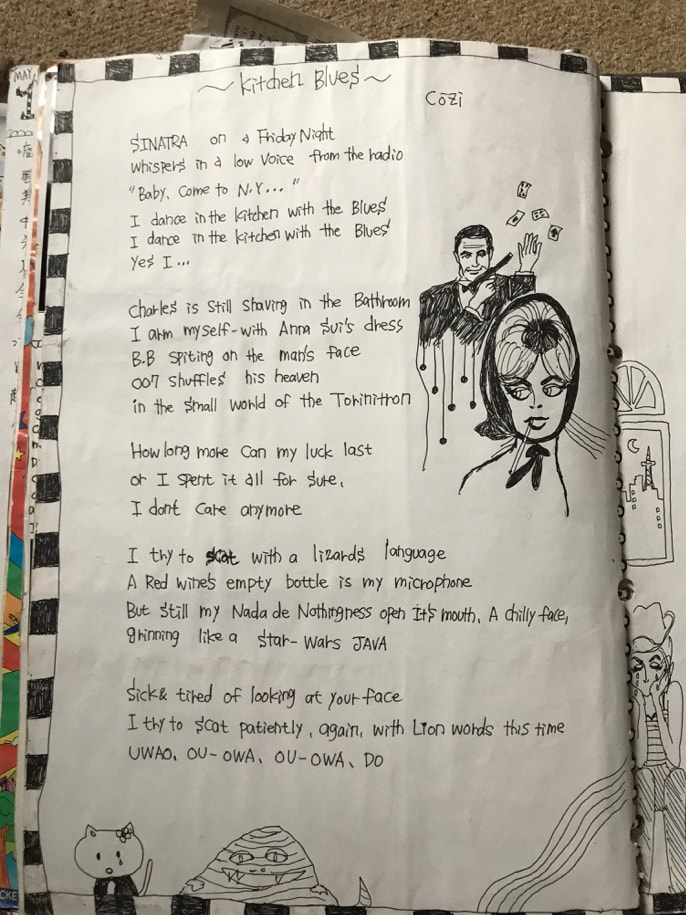 ~ Kitchen Blues ~
COZI
SINATRA on a Friday Night
whispers in a low voice from the radio
"Baby, Come to N.Y... "
I dance in the kitchen with the Blues
I dance in the kitchen with the Blues
Yes I ...
Charles is still shaving in the Bathroom
I arm myself-with Anna Sui's dress
B.B spiting on the man's face
007 shuffles his heaven
in the small world of the Torinitron
How long more can my luck last
or I spent it all for sure,
I dont care anymore
I try to scat with a lizards language
A Red wine's empty bottle is my microphone
But still my Nada de Nothingness open It's mouth, A chilly face,
grinning like a star-wars JAVA
Sick & tired of looking at your face
I try to scat patiently, again, with Lion words this time
UWAO, OU-OWA, OU-OWA, DO
MAY